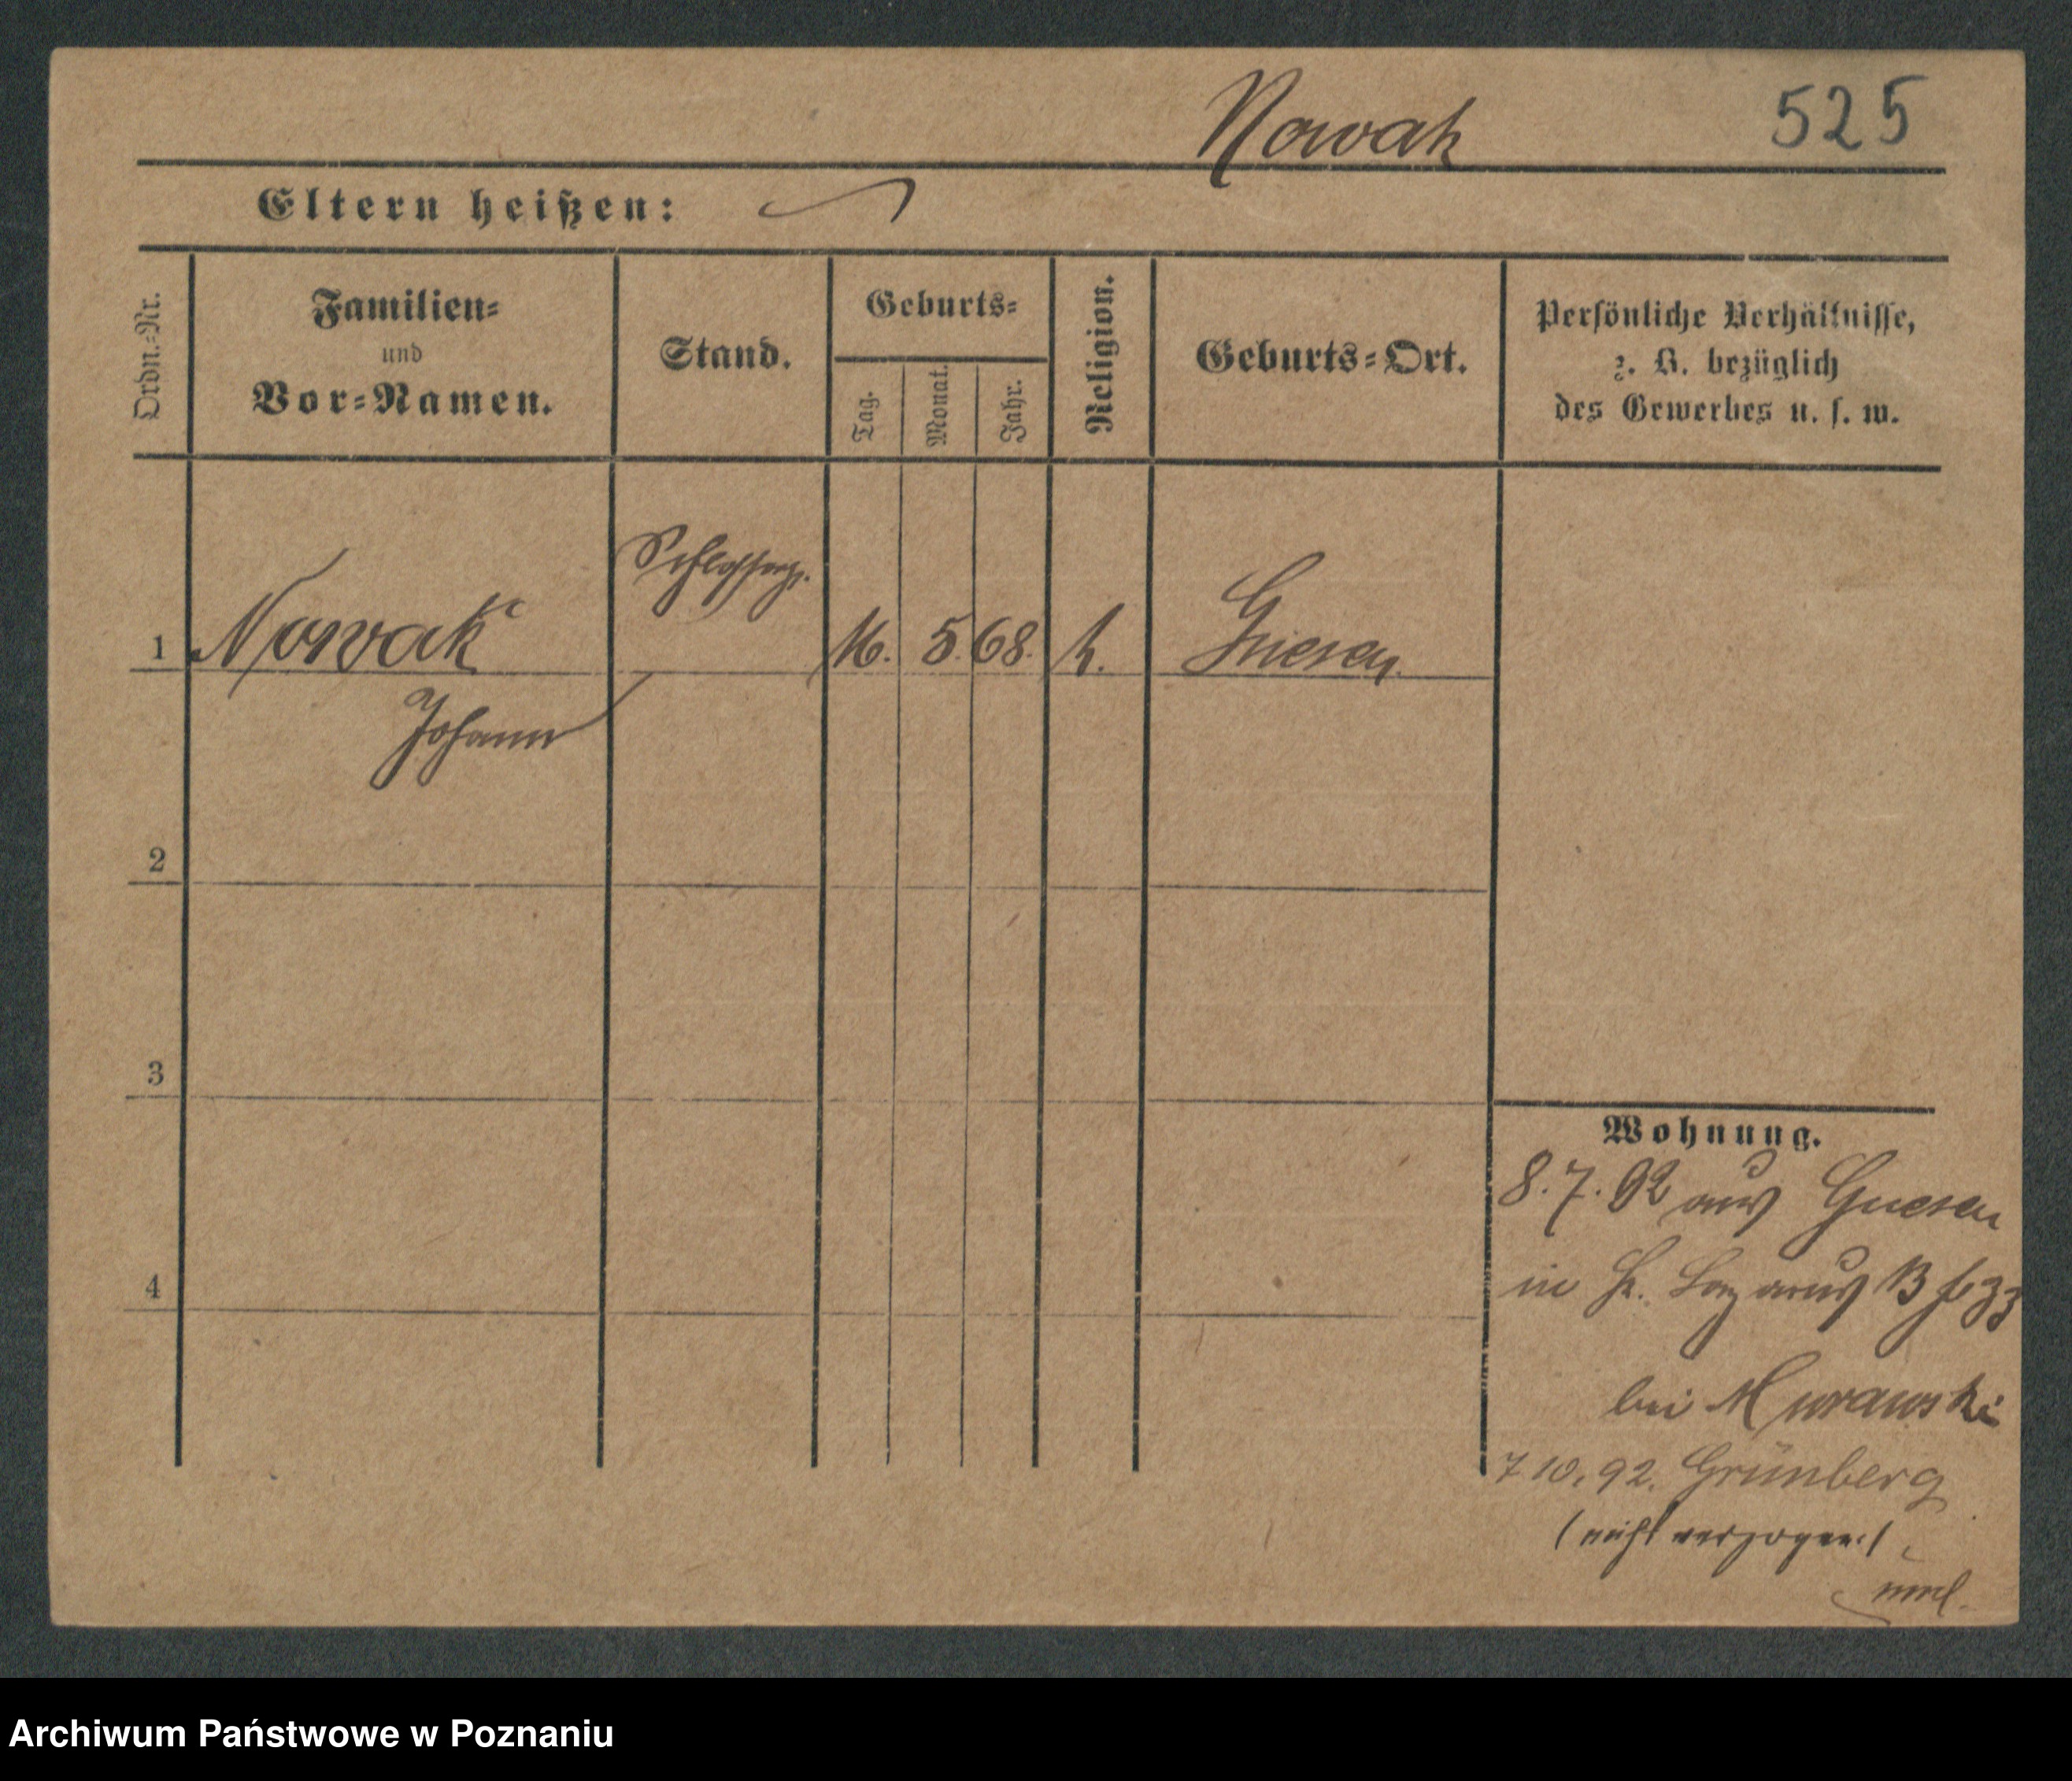 Nowak 525
Eltern heißen:
Ordn.-Nr.
Familien-
und
Vor-Namen.
Stand.
Geburts-
Tag.
Monat.
Jahr.
Religion.
Geburts-Ort.
Persönliche Verhältnisse,
z. B. bezüglich
des Gewerbes u. s. w.
Schlosserg.
1 Nowak 16. 5. 68. k. Gnesen.
Johann
2
3
4
Wohnung.
8. 7. 92 aus Gnesen
in St. Lazarus B
bei Murawski
7 10. 92. Grünberg
(nicht verzogen)
Archiwum Państwowe w Poznaniu